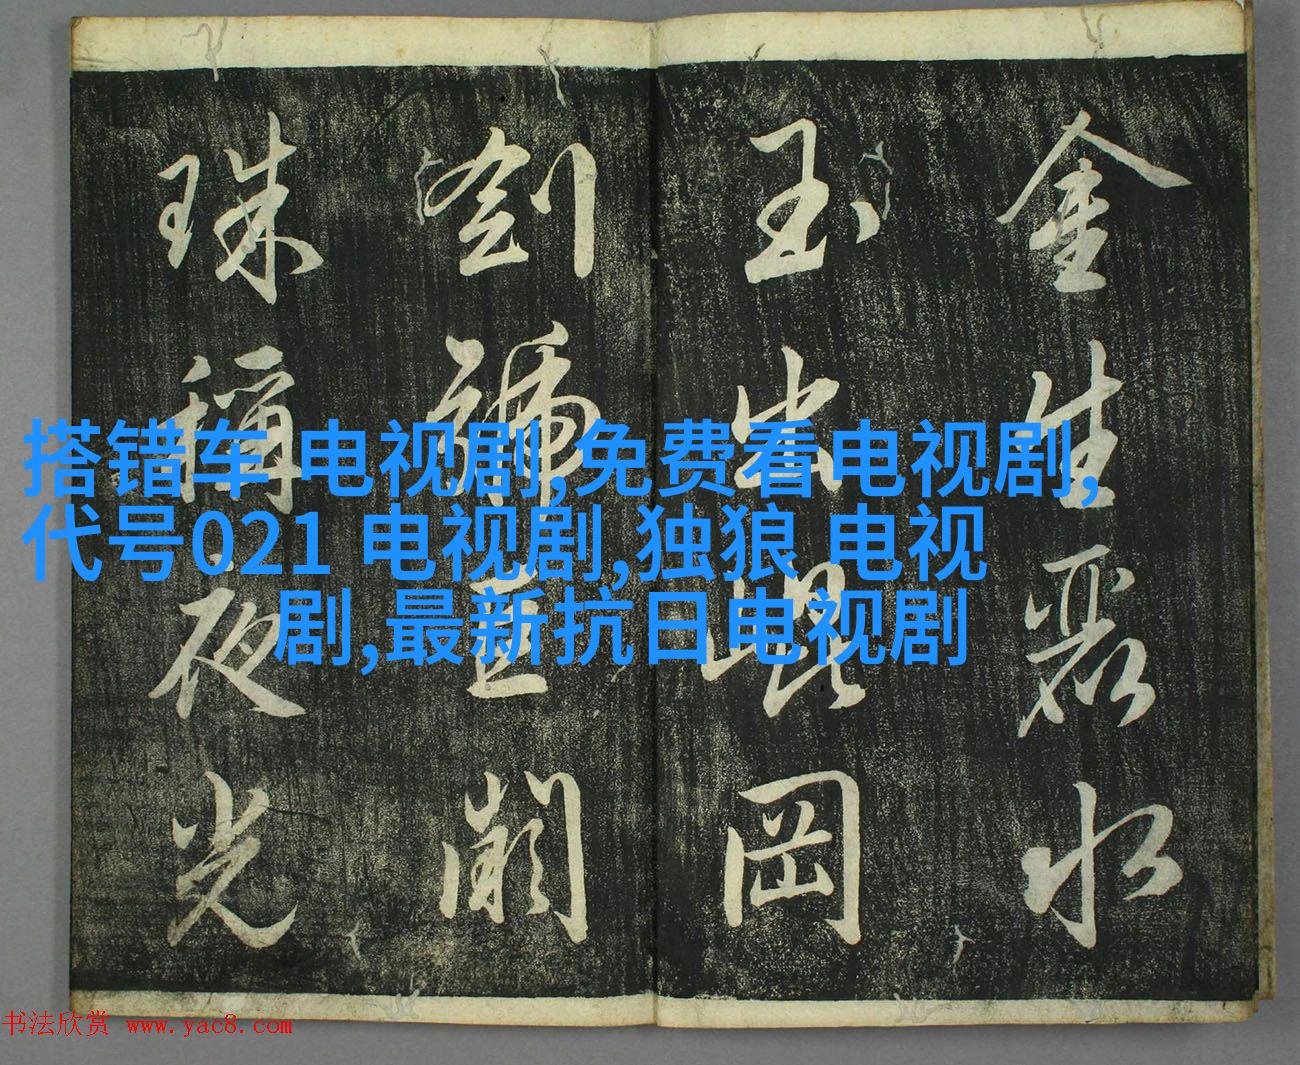 金生麗水
玉出崐岡
劍號巨闕
珠稱夜光
搭错车 电视剧,免费看电视剧,
代号021 电视剧,独狼 电视
剧,最新抗日电视剧
书法欣赏 www.yac8.com